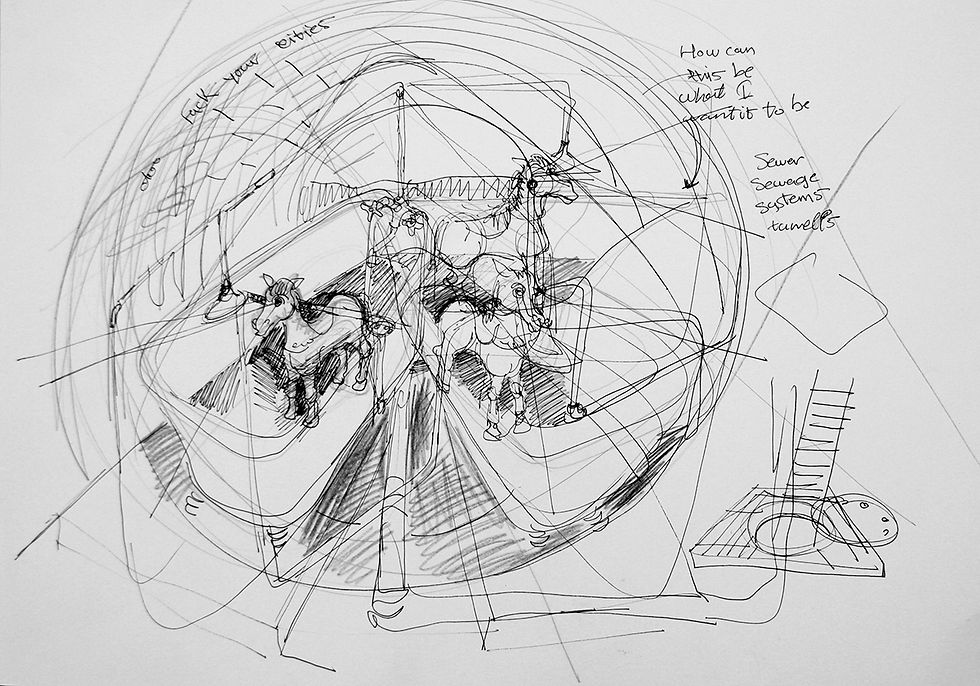 fuck your cities
How can
this be
what I
want it to be
Sewer
sewerage
systems
tunnels